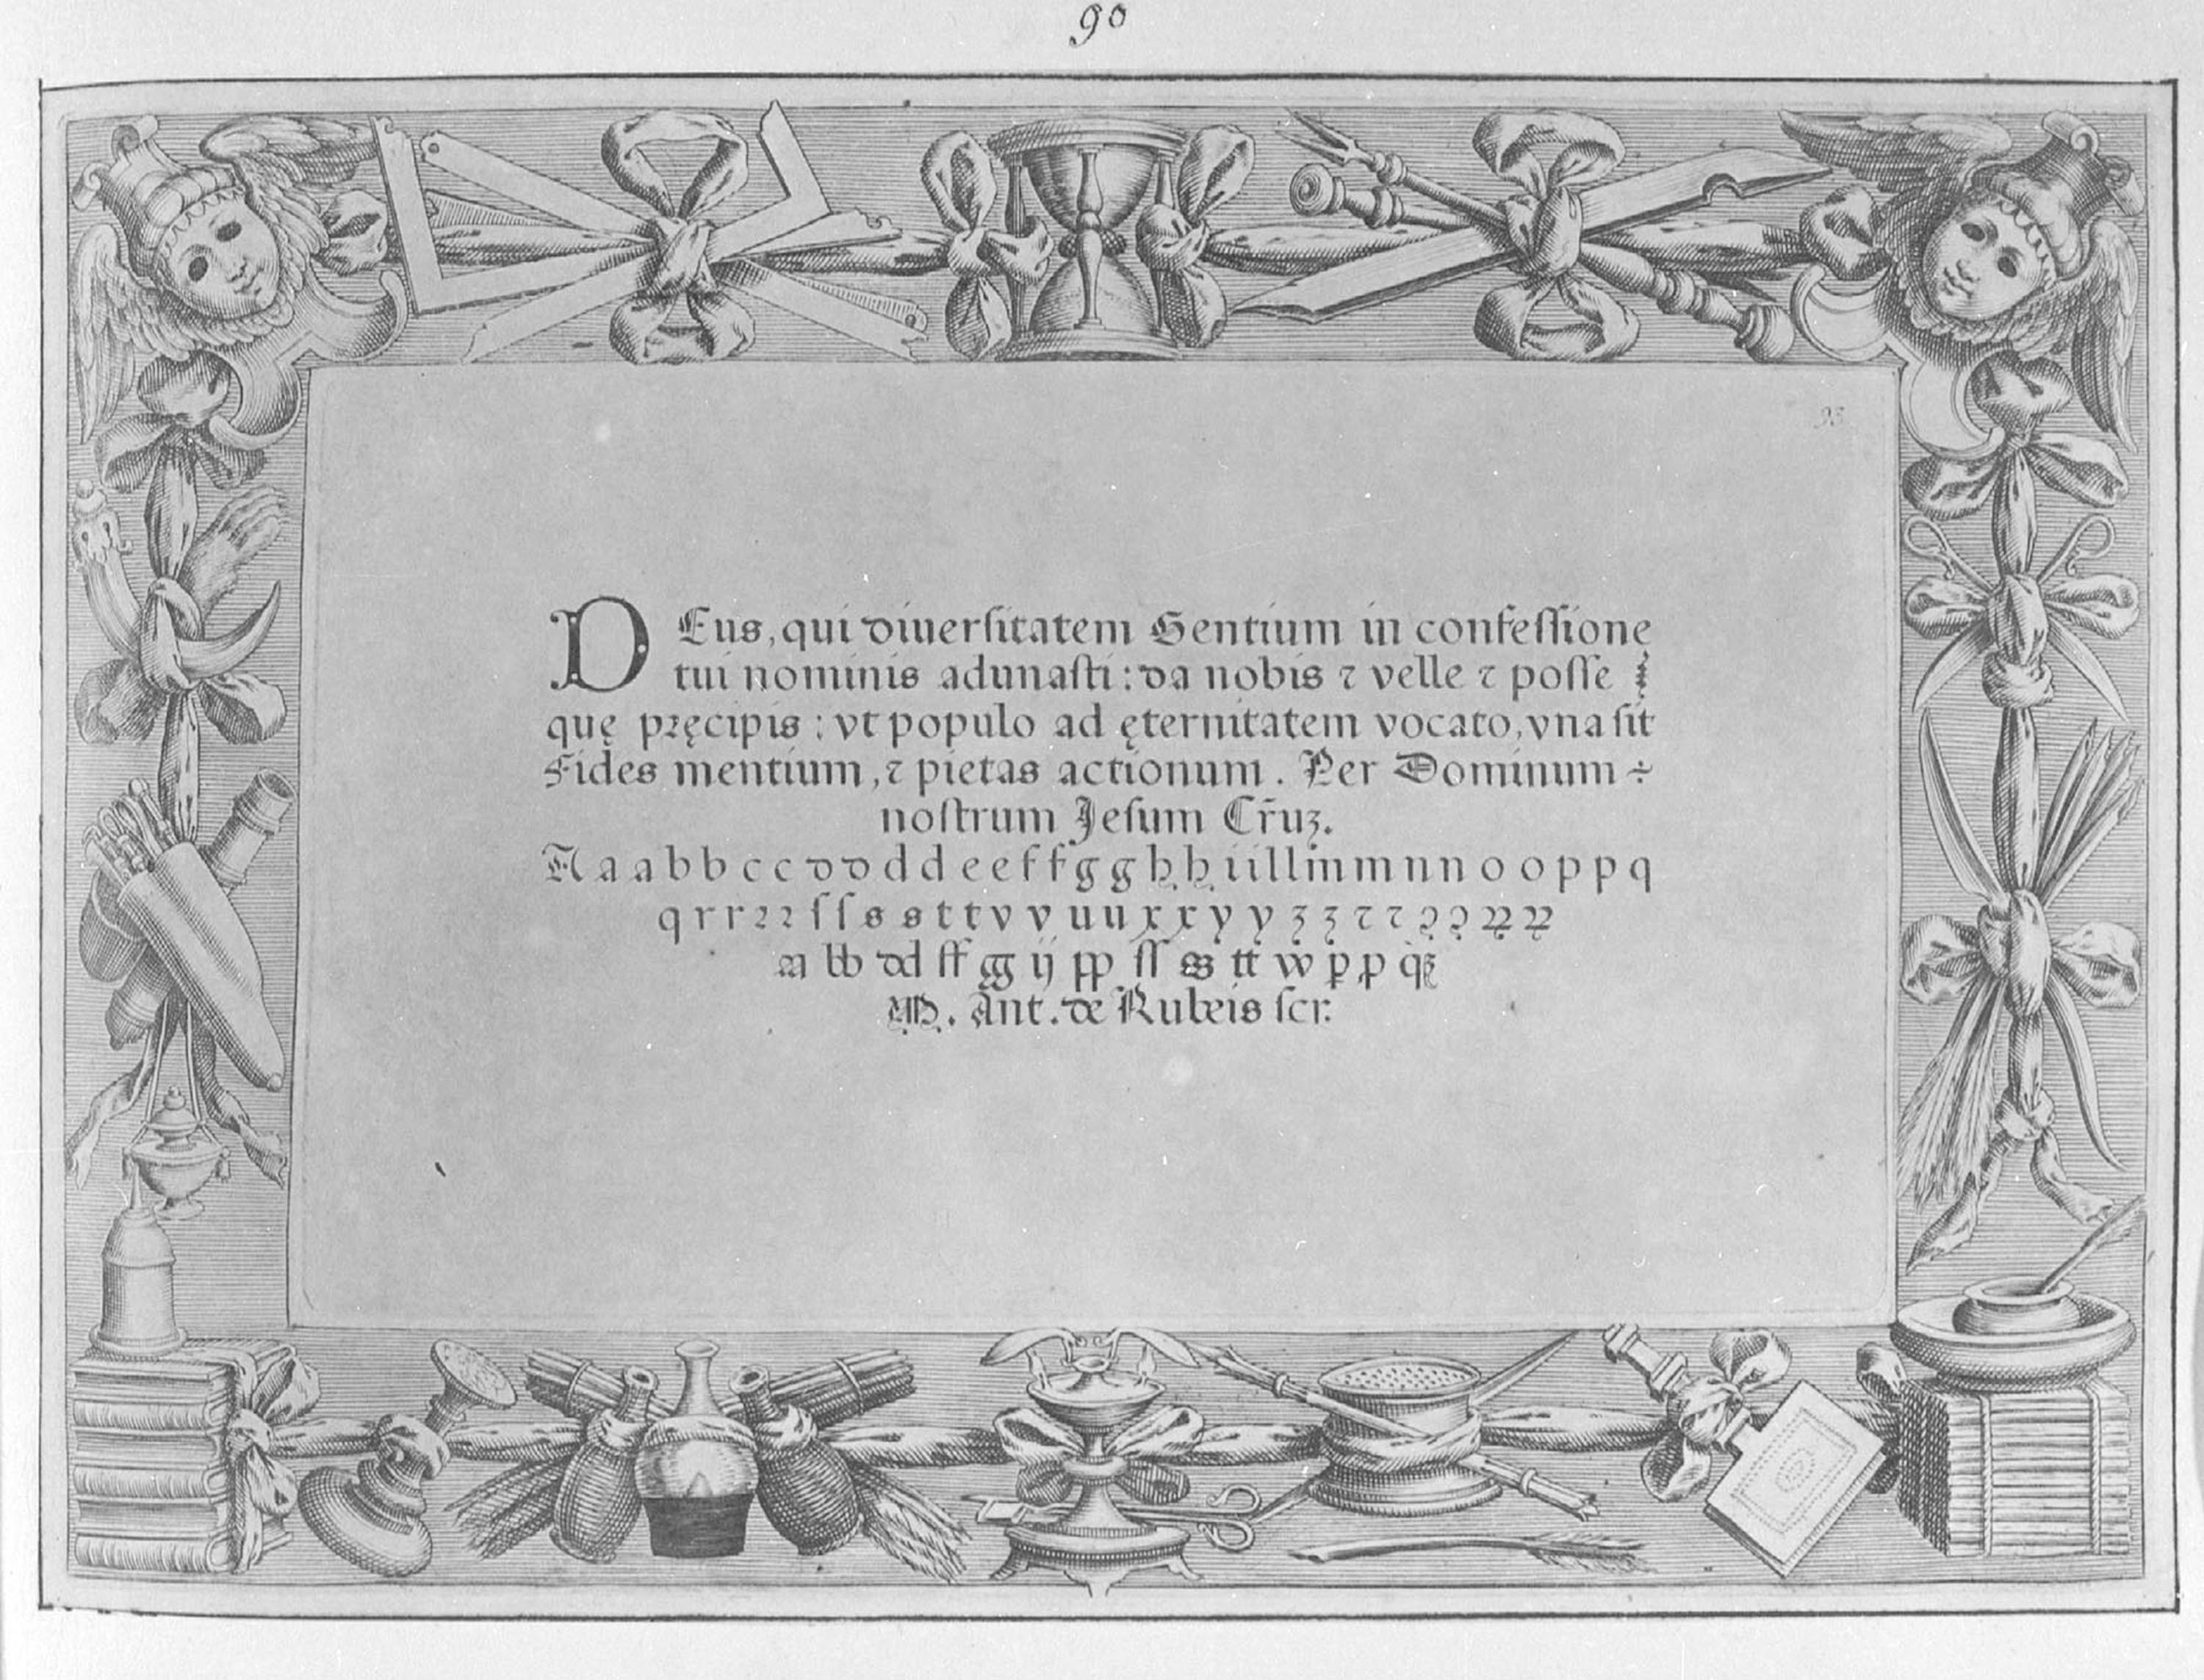 90
93
DEus, qui diuerſitatem Gentium in confeſſione
tui nominis adunaſti: da nobis ⁊ velle ⁊ poſſe
quę pręcipis: vt populo ad ęternitatem vocato, vna ſit
Fides mentium, ⁊ pietas actionum. Per Dominum ÷
noſtrum Jeſum Cr̄uʒ.
A a a b b c c d d d d e e f f g g h h i i l l m m n n o o p p q
q r r ꝛ ꝛ ſ ſ s s t t v v u u x x y y ʒ ʒ ⁊ ⁊
bb dd ff gg ij pp ſſ ss tt w
M. Ant. de Rubeis ſcr.